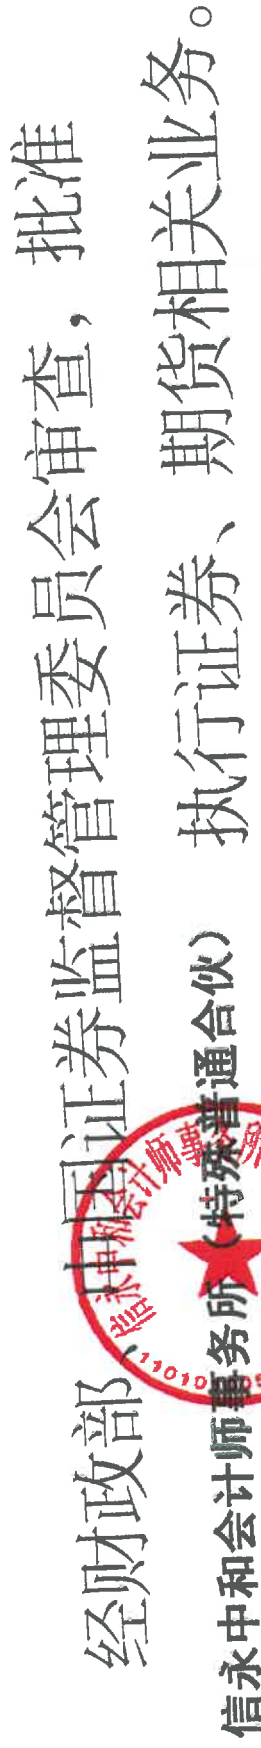 经财政部、中国证券监督管理委员会审查，批准
信永中和会计师事务所（特殊普通合伙） 执行证券、期货相关业务。
信永中和会计师事务所